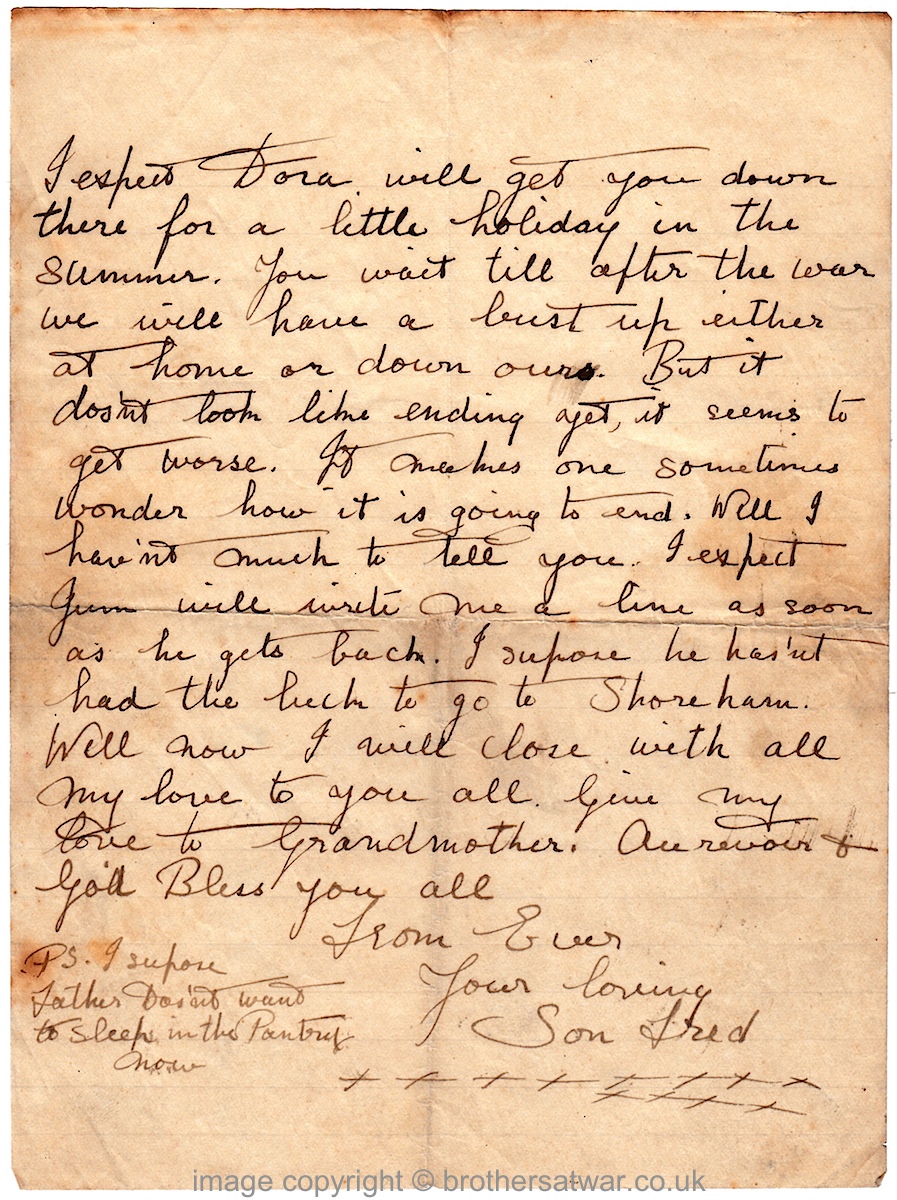 I expect Dora will get you down
there for a little holiday in the
summer. You wait till after the war
we will have a bust up either
at home or down ours. But it
dos'nt look like ending yet, it seems to
get worse. It makes one sometimes
wonder how it is going to end. Well I
have'nt much to tell you. I expect
Jum will write me a line as soon
as he gets back. I supose he has'nt
had the luck to go to Shoreham.
Well now I will close with all
my love to you all. Give my
love to Grandmother. Au revoir &
God Bless you all
From Ever
Your loving
Son Fred
PS. I supose
Father Dos'nt want
to sleep in the Pantry
now
+ + + + + + + +
+ + + +
image copyright © brothersatwar.co.uk